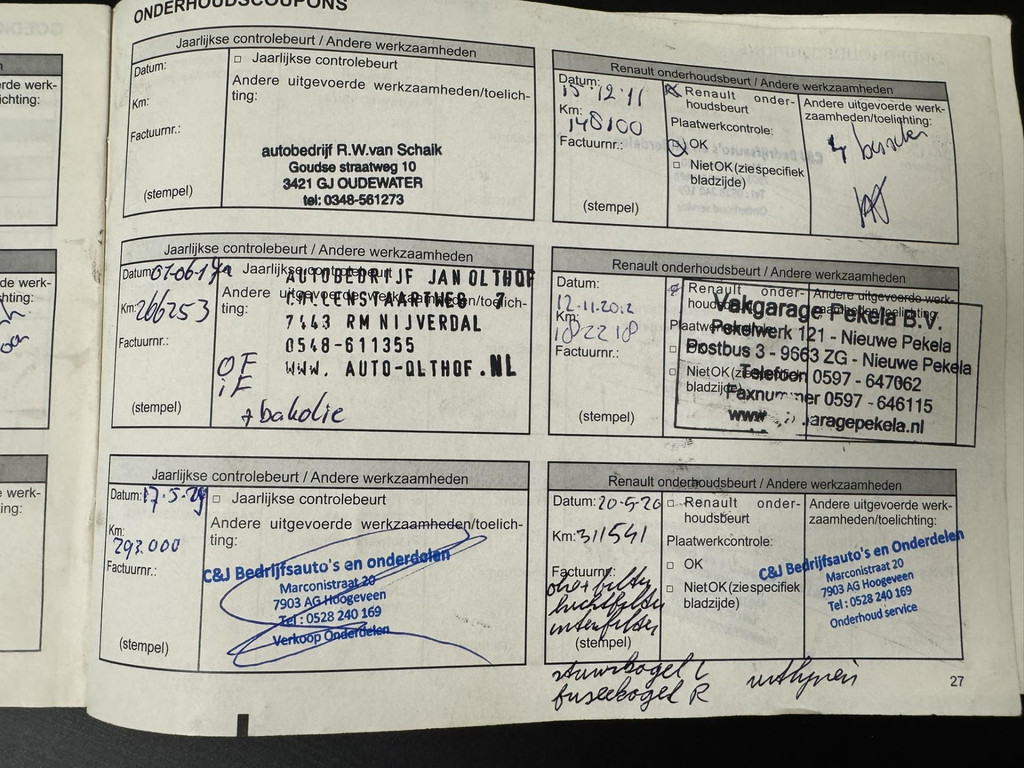 ONDERHOUDSCOUPONS
Jaarlijkse controlebeurt / Andere werkzaamheden
Datum:
□ Jaarlijkse controlebeurt
Andere uitgevoerde werkzaamheden/toelich-
ting:
Km:
Factuurnr.:
(stempel)
autobedrijf R.W.van Schaik
Goudse straatweg 10
3421 GJ OUDEWATER
tel: 0348-561273
Renault onderhoudsbeurt / Andere werkzaamheden
Datum: 15-12-11
Km: 148100
Factuurnr.:
(stempel)
Renault onder-
houdsbeurt
Plaatwerkcontrole:
OK
□ Niet OK (zie specifiek
bladzijde)
Andere uitgevoerde werk-
zaamheden/toelichting:
Jaarlijkse controlebeurt / Andere werkzaamheden
Datum:
Km: 266253
Factuurnr.:
(stempel)
Jaarlijkse controlebeurt
Andere uitgevoerde werkzaamheden/toelich-
ting:
AUTOBEDRIJF JAN OLTHOF
7443 RM NIJVERDAL
0548-611355
WWW. AUTO-OLTHOF.NL
OF
iF
+ bakolie
Renault onderhoudsbeurt / Andere werkzaamheden
Datum:
12.11.2012
Km:
182218
Factuurnr.:
(stempel)
Renault onder-
houdsbeurt
Plaatwerkcontrole:
□ OK
□ Niet OK (zie specifiek
bladzijde)
Andere uitgevoerde werk-
zaamheden/toelichting:
Vakgarage Pekela B.V.
Pekelwerk 121 - Nieuwe Pekela
Postbus 3 - 9663 ZG - Nieuwe Pekela
Telefoon 0597 - 647062
Faxnummer 0597 - 646115
Jaarlijkse controlebeurt / Andere werkzaamheden
Datum: 17-5-
Km:
293.000
Factuurnr.:
(stempel)
□ Jaarlijkse controlebeurt
Andere uitgevoerde werkzaamheden/toelich-
ting:
C&J Bedrijfsauto's en onderdelen
Marconistraat 20
7903 AG Hoogeveen
Tel : 0528 240 169
Verkoop Onderdelen
Renault onderhoudsbeurt / Andere werkzaamheden
Datum: 20-5-20
Km: 311541
Factuurnr.:
oliefilter
luchtfilter
(stempel)
□ Renault onder-
houdsbeurt
Plaatwerkcontrole:
□ OK
□ Niet OK (zie specifiek
bladzijde)
Andere uitgevoerde werk-
zaamheden/toelichting:
C&J Bedrijfsauto's en Onderdelen
Marconistraat 20
7903 AG Hoogeveen
Tel : 0528 240 169
Onderhoud service
stuurkogel L
fuseekogel R
uitlijnen
27